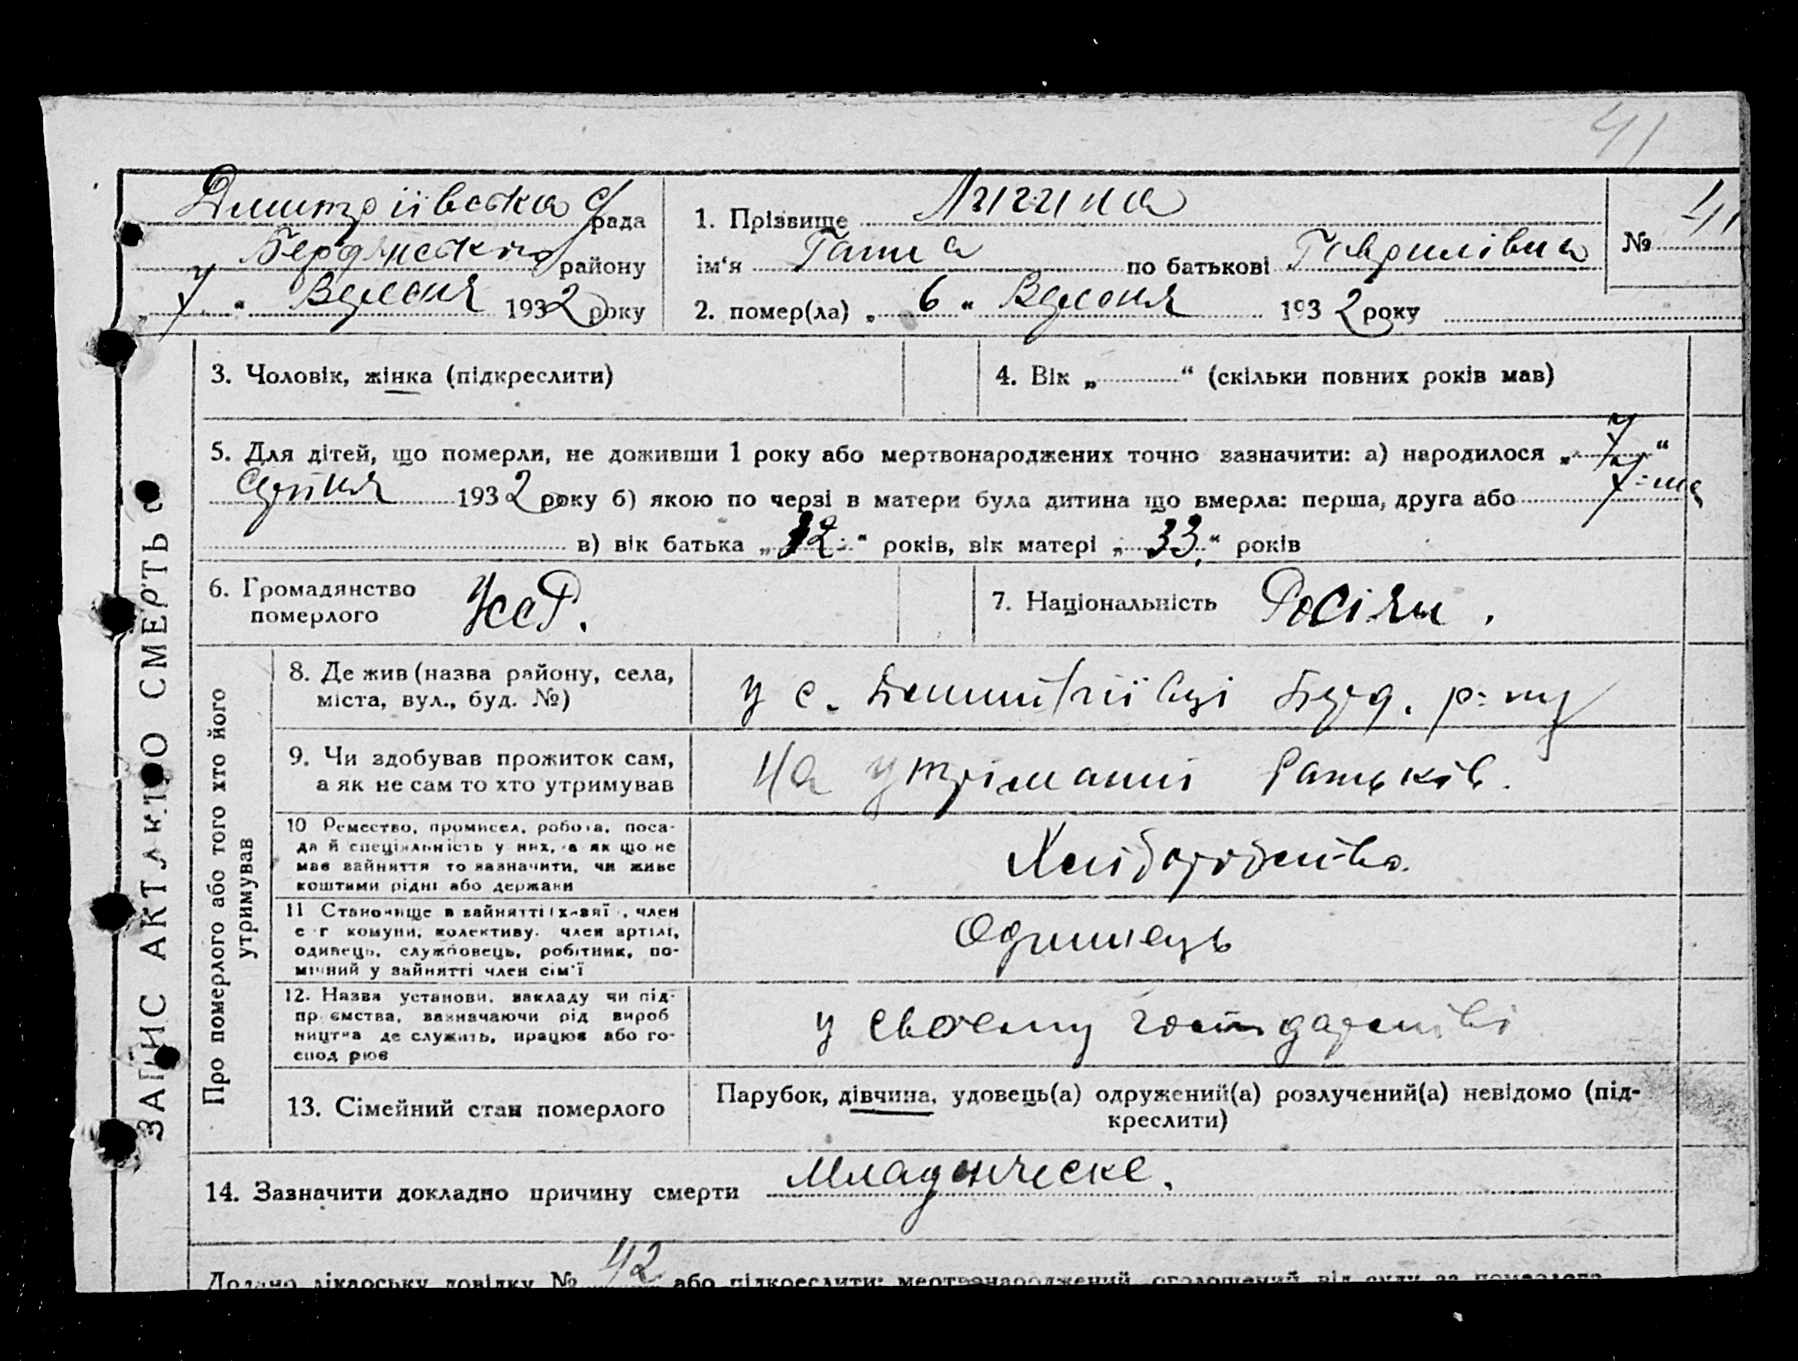 41
Дмитріївська с/рада
Бердянського району
„ 7 “ Вересня 1932 року
1. Прізвище
ім‘я Ганна по батькові Гаврилівна
2. помер(ла) „ 6 “ Вересня 1932 року
№ 41
3. Чоловік, жінка (підкреслити)
4. Вік „ “ (скільки повних років мав)
5. Для дітей, що померли, не доживши 1 року або мертвонароджених точно зазначити: а) народилося „ 7 “
Серпня 1932 року б) якою по черзі в матери була дитина що вмерла: перша, друга або 7-ма
в) вік батька „ 32 “ років, вік матері „ 33 “ років
6. Громадянство
померлого УССР.
7. Національність Росіян.
ЗАПИС АКТА ПРО СМЕРТЬ
Про померлого або того хто його
утримував
8. Де жив (назва району, села,
міста, вул., буд. №)
у с. Дмитріївці Берд. р-ну
9. Чи здобував прожиток сам,
а як не сам то хто утримував
На утріманні батьків.
10 Ремество, промисел, робота, поса-
да й спеціяльність у них, а як що не
мав зайняття то зазначити, чи живе
коштами рідні або держави
Хліборобство.
11 Становище в зайнятті (х-зяї , член
с г комуни, колективу. член артілі,
одинець, службовець, робітник, по-
мічний у зайнятті член сім‘ї
Одинець
12. Назва установи, закладу чи під-
пр ємства, зазначаючи рід вироб
ництва де служить, працює або го-
спод рює
у своему господарстві
13. Сімейний стан померлого
Парубок, дівчина, удовець(а) одружений(а) розлучений(а) невідомо (під-
креслити)
14. Зазначити докладно причину смерти Младенческе.
Додано лікарську довідку № 42 або підкреслити: мертвонароджений, оголошений від суду за померлого